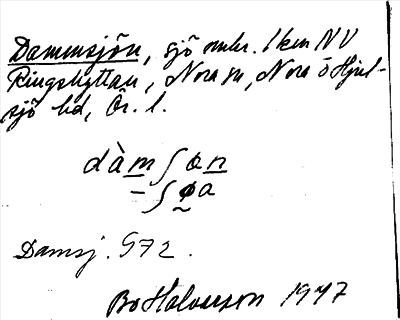 Dammsjön, sjö omkr. 1 km NV
Ringshyttan, Nora sn, Nora o Hjul-
sjö hd, Ör. l.
dàm̲ʃøn̲
–ʃø̰a
Damsj. G72.
Bo Halvarson 1947